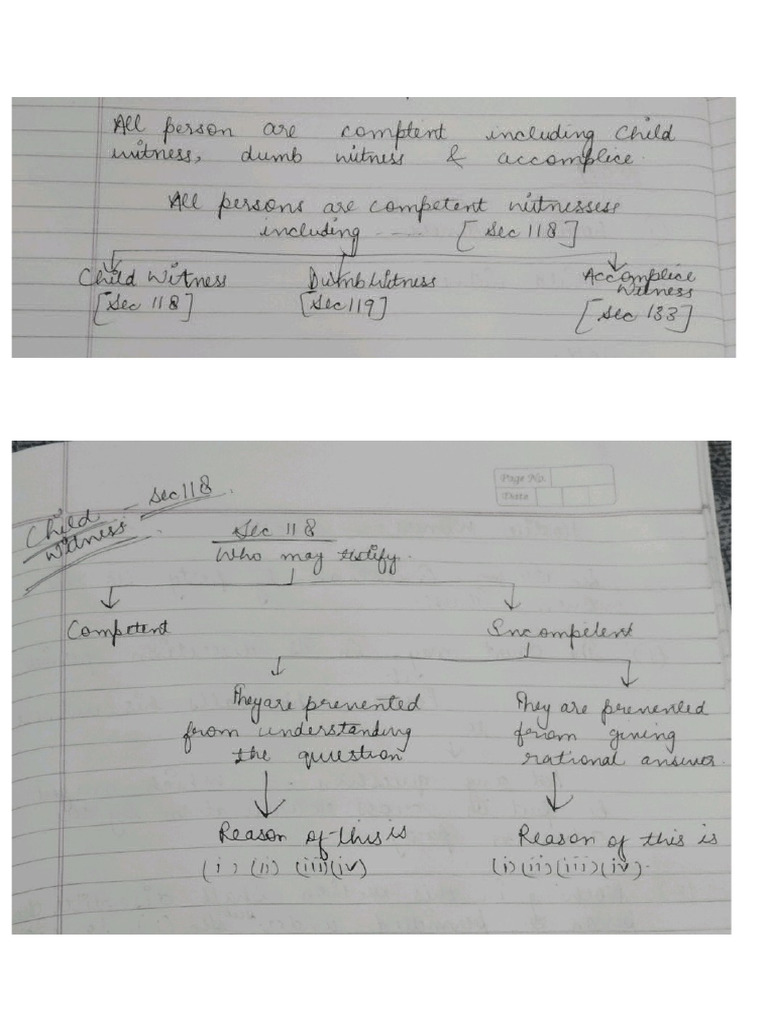 All person are comptent including Child
witness, dumb witness & accomplice.
All persons are competent witnessess
including ---- [Sec 118]
Child Witness
[Sec 118]
Dumb Witness
[Sec 119]
Accomplice
Witness
[Sec 133]
Page No.
Date
Child Witness - Sec 118.
Sec 118
Who may testify.
Competent
Incompetent
They are prevented
from understanding
the question
They are prevented
from giving
rational answer.
Reason of this is
(i) (ii) (iii) (iv)
Reason of this is
(i) (ii) (iii) (iv).